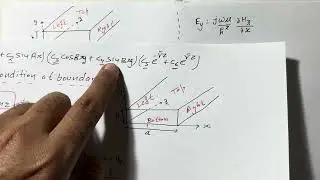 y
Left
Top
Right
E_y : jωμ/h² ∂H_z/∂x
+ C₂ sin Ax) (C₃ cos By + C₄ sin By) (C₅ e^-γ̄z + C₆ e^γ̄z)
ondition at bounda
Top
Left
z
Right
Bottom
a
x